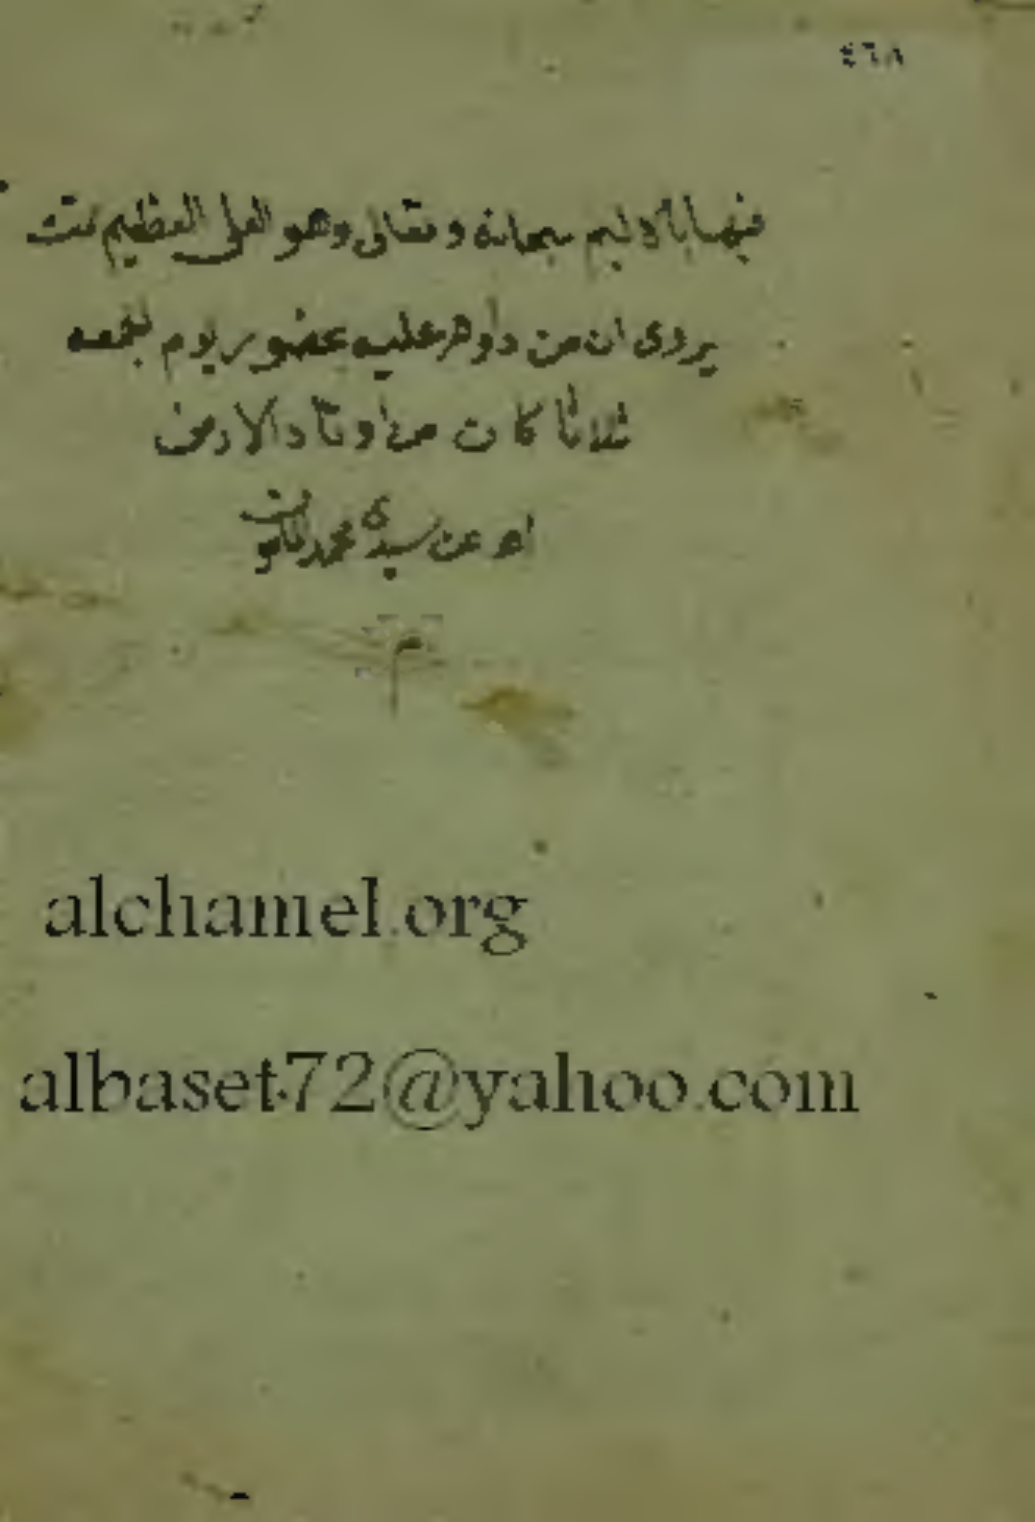 ٤٦٨
سبحانه وتعالى وهو العلي العظيم تمت
يروى ان من داوم عليه عصر يوم الجمعه
ثلاثا كان من اوتاد الارض
اهـ عن سيدى محمد
م
alchamel.org
albaset72@yahoo.com